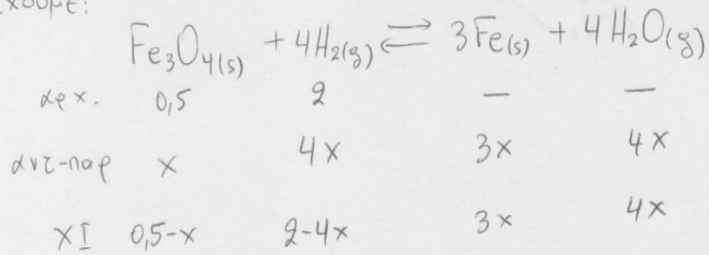 έχουμε:
Fe₃O₄(s) + 4H₂(g) ⇌ 3Fe(s) + 4H₂O(g)
αρχ. 0,5 2 — —
αντ-παρ x 4x 3x 4x
ΧΙ 0,5-x 2-4x 3x 4x